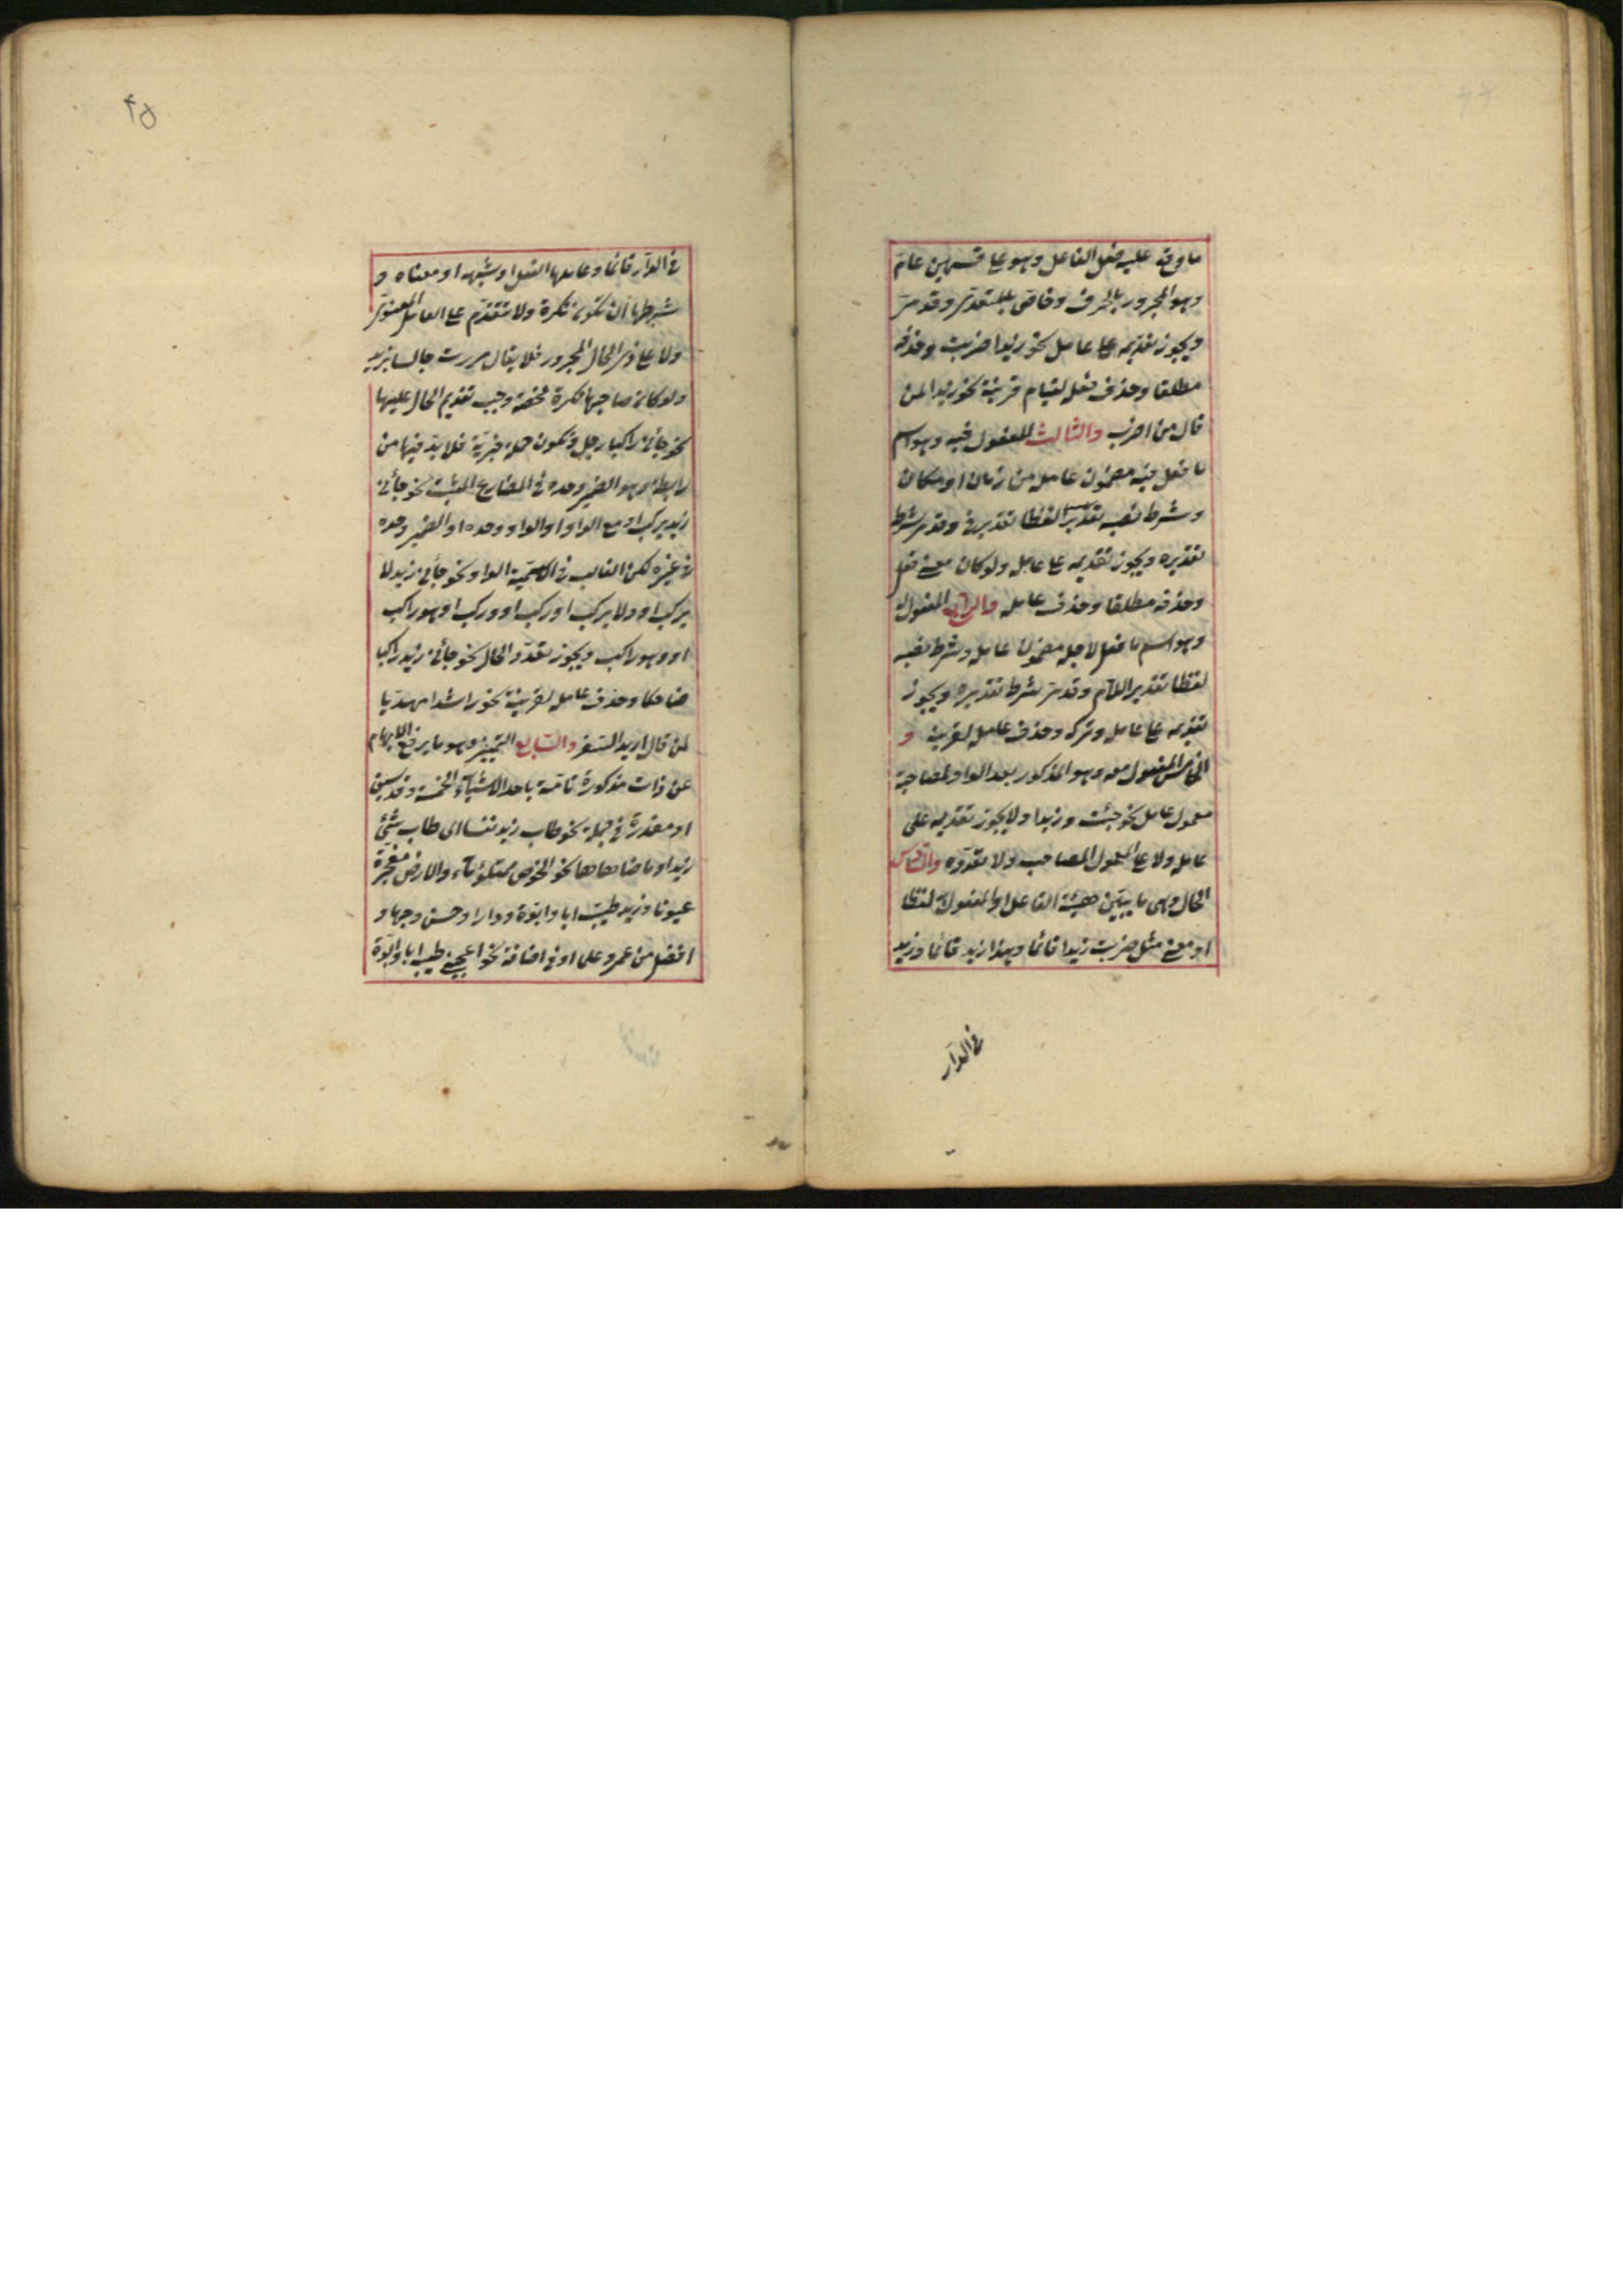 ما وقع عليه فعل الفاعل وهو على قسمين عام
وهو المجرور بالحرف وخاص بالمتعدى وقد مر
ويجوز تقديمه على عامله نحو زيدا ضربت وحذفه
مطلقا وحذف فعله لقيام قرينة نحو زيدا لمن
قال من اضرب والثالث المفعول فيه وهو اسم
ما فعل فيه مضمون عامله من زمان او مكان
وشرط نصبه لفظا تقدير فى وقد مر شرط
تقديره ويجوز تقديمه على عامله ولو كان معنى فعل
وحذفه مطلقا وحذف عامله والرابع المفعول له
وهو اسم ما فعل لاجله مضمون عامله وشرط نصبه
لفظا تقدير اللام وقد مر شرط تقديره ويجوز
تقديمه على عامله وتركه وحذف عامله لقرينة و
الخامس المفعول معه وهو المذكور بعد الواو لمصاحبة
معمول عامله نحو جئت وزيدا ولا يجوز تقديمه على
عامله ولا على المعمول المصاحب ولا تعدده والسادس
الحال وهى ما يبين هيئة الفاعل او المفعول به لفظا
او معنى مثل ضربت زيدا قائما وهذا زيد قائما وزيد
فى الدار
٤٥
فى الدار قائما وعاملها الفعل او شبهه او معناه و
شرطها ان تكون نكرة ولا تتقدم على العامل المعنوى
ولا على ذى الحال المجرور فلا يقال مررت جالسا بزيد
ولو كان صاحبها نكرة محضة وجب تقديم الحال عليها
نحو جائنى راكبا رجل وتكون جملة خبرية فلا بد فيها من
رابطة وهو الضمير وحده فى المضارع المثبت نحو جائنى
زيد يركب او مع الواو او الواو وحده او الضمير وحده
فى غيره لكن الغالب فى الاسمية الواو نحو جائنى زيد لا
يركب او ولا يركب او ركب او وركب او هو راكب
او وهو راكب ويجوز تعدد الحال نحو جائنى زيد راكبا
ضاحكا وحذف عامله لقرينة نحو راشدا مهديا
لمن قال اريد السفر والسابع التمييز وهو ما يرفع الابهام
عن ذات مذكورة تامة باحد الاشياء الخمسة وقد سبق
او مقدرة فى جملة نحو طاب زيد نفسا اى طاب شئ
زيد او ما ضاهاها نحو الحوض ممتلئ ماء والارض مفجرة
عيونا وزيد طيب ابا وابوة ودارا وحسن وجها و
افضل من عمرو علما او فى اضافة نحو اعجبنى طيبه ابا وابوة